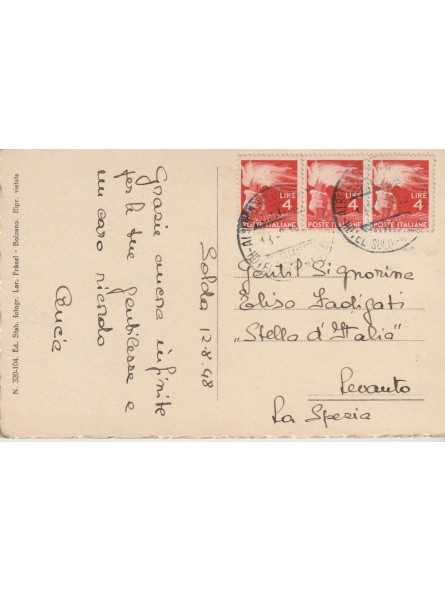 Solda 12.8.48
Grazie ancora infinite
per le tue gentilezze e
un caro ricordo
Lucia
N. 320-104. Ed. Stab. fotogr. Leo. Fränzl - Bolzano. Ripr. vietata
LIRE
4
POSTE ITALIANE
LIRE
4
POSTE ITALIANE
LIRE
4
POSTE ITALIANE
Gentil Signorina
Elisa Fadigati
„Stella d'Italia"
Levanto
La Spezia